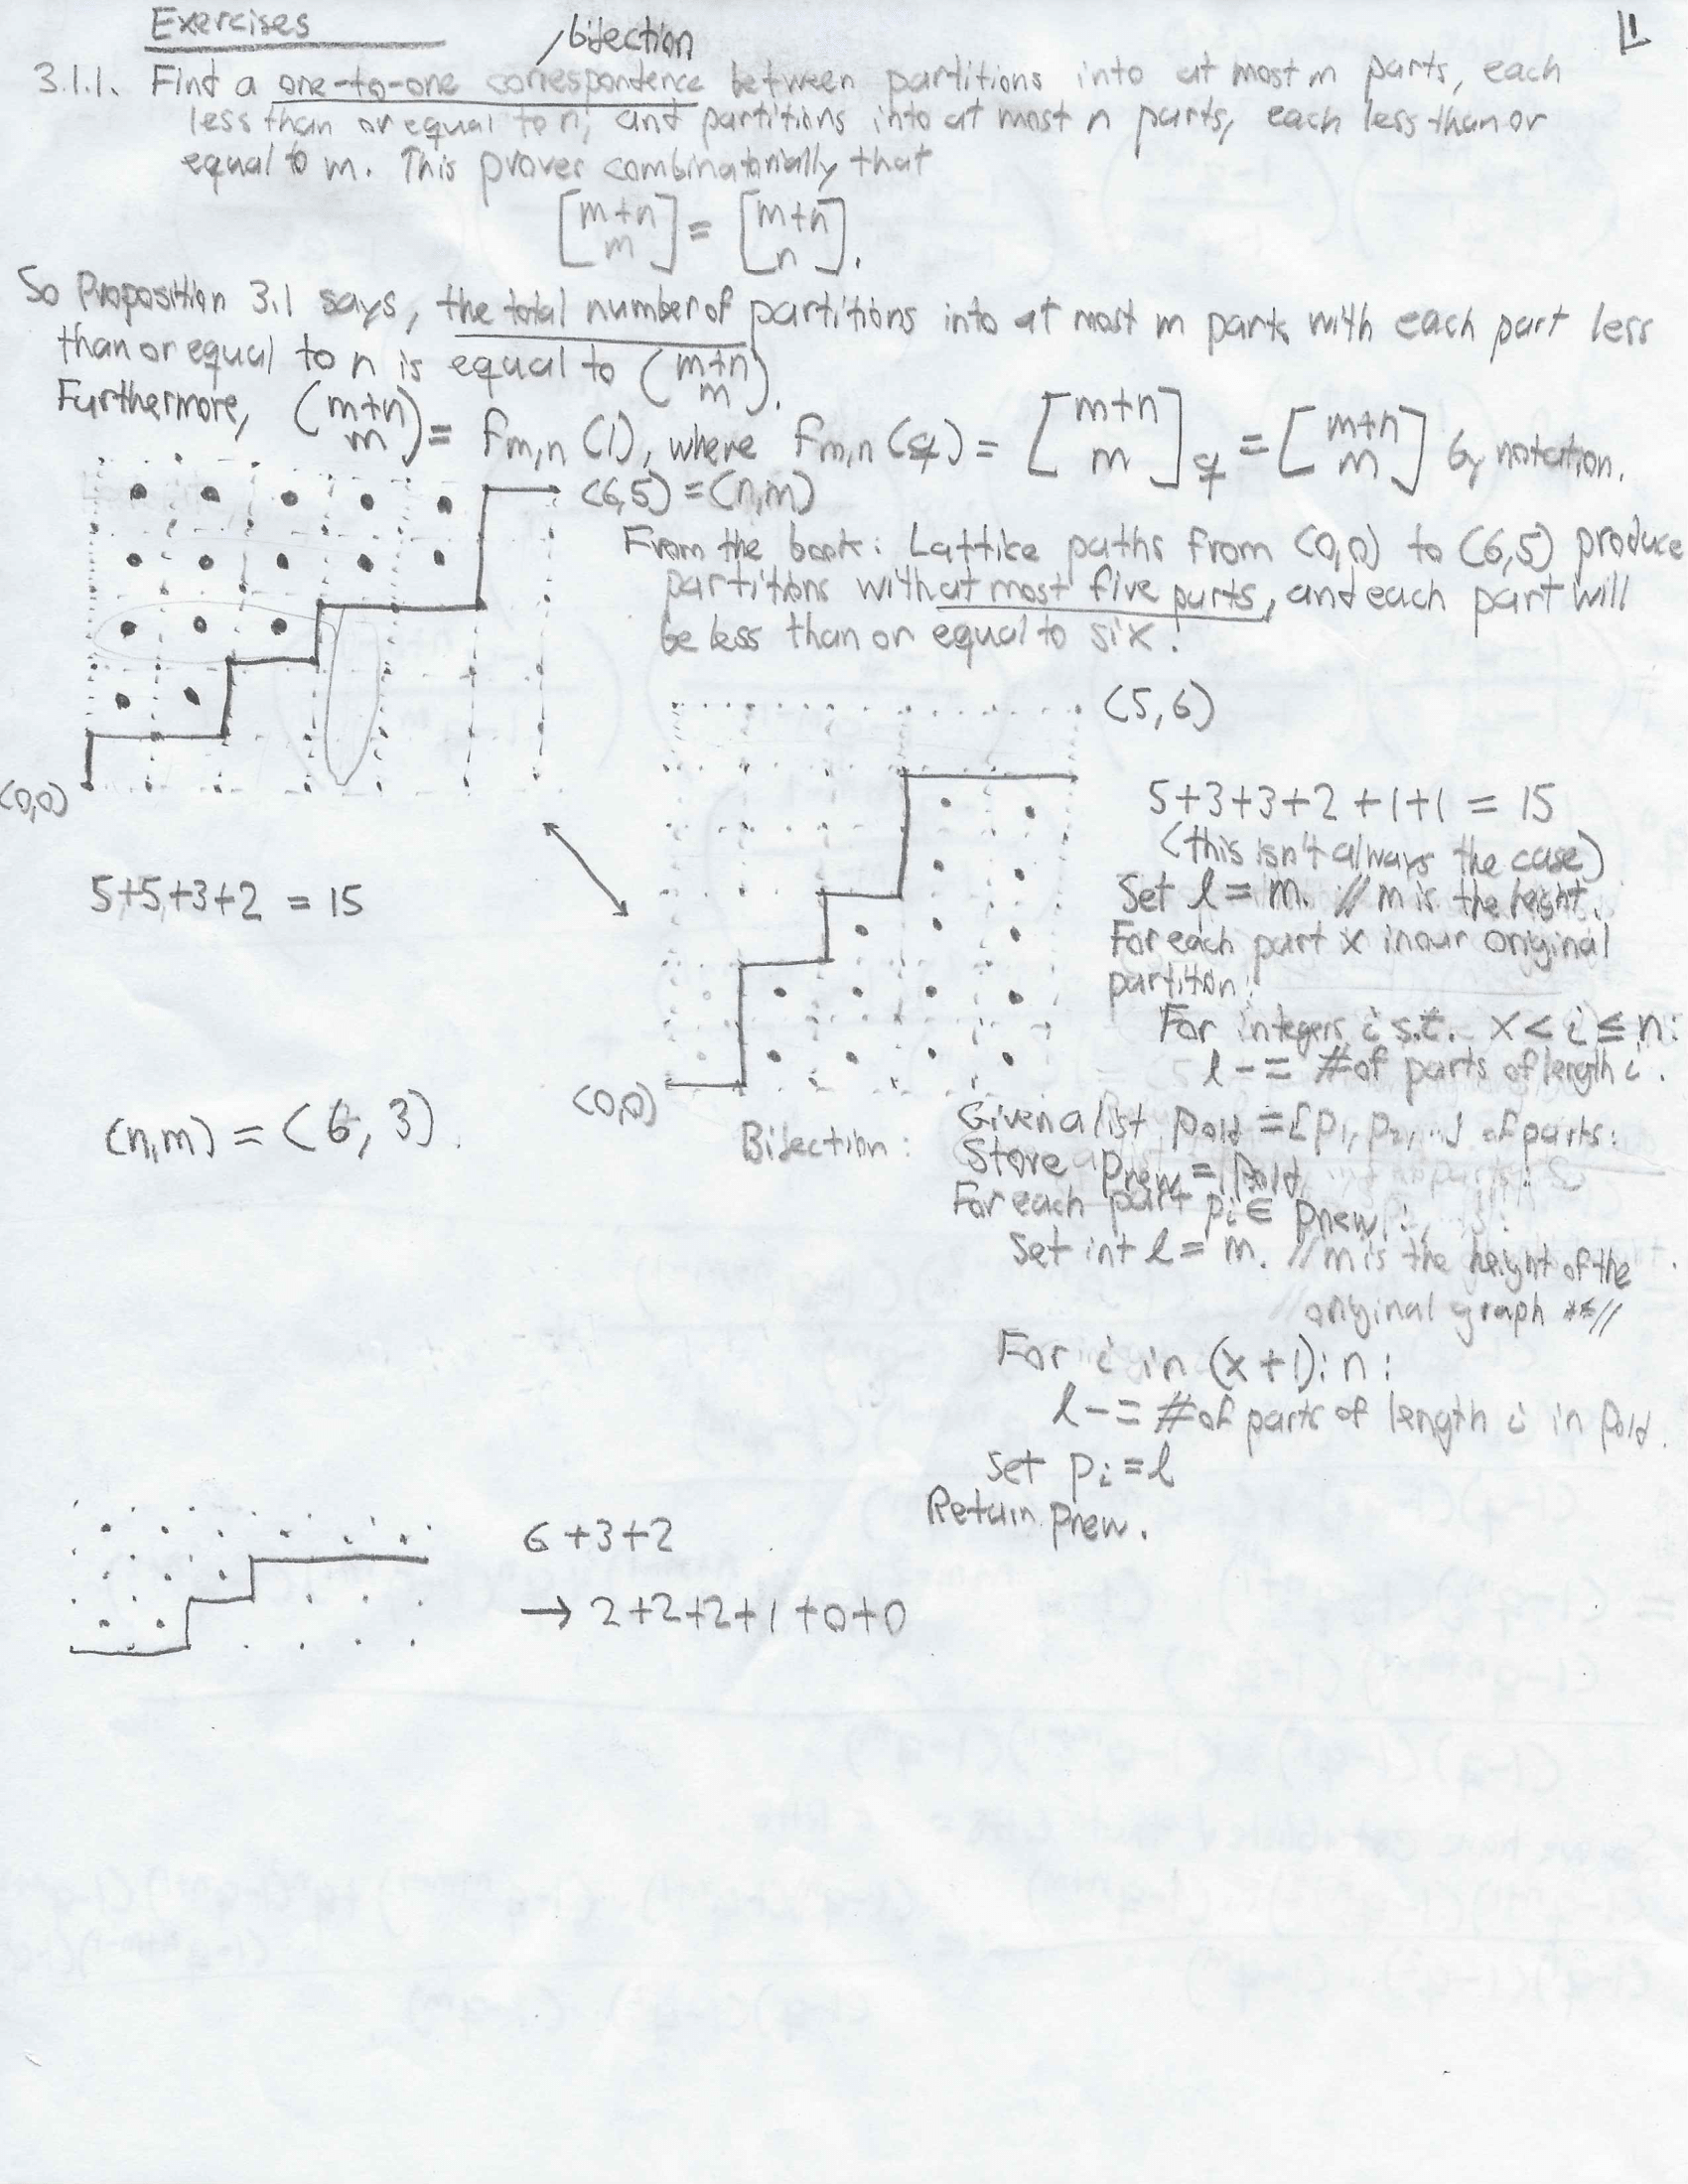 Exercises
/bijection
L1
3.1.1. Find a one-to-one correspondence between partitions into at most m parts, each
less than or equal to n, and partitions into at most n parts, each less than or
equal to m. This proves combinatorially that
[m+n m] = [m+n n].
So Proposition 3.1 says, the total number of partitions into at most m parts with each part less
than or equal to n is equal to (m+n m).
Furthermore, (m+n m) = fm,n (1), where fm,n (q) = [m+n m]q = [m+n m] by notation.
(6,5) = (n,m)
From the book: Lattice paths from (0,0) to (6,5) produce
partitions with at most five parts, and each part will
be less than or equal to six.
(0,0)
(5,6)
5+5+3+2 = 15
5+3+3+2+1+1 = 15
(this isn't always the case)
Set l = m. // m is the height.
For each part x in our original
partition:
For integers i s.t. x < i ≤ n:
l -= # of parts of length i.
(0,0)
(n,m) = (6,3).
Bijection: Given a list pold = [p1, p2, ...] of parts:
Store pnew = pold
For each part pi ∈ pnew:
Set int l = m. // m is the height of the
// original graph **//
For i in (x+1):n:
l -= # of parts of length i in pold.
set pi = l
Return pnew.
6+3+2
→ 2+2+2+1+0+0